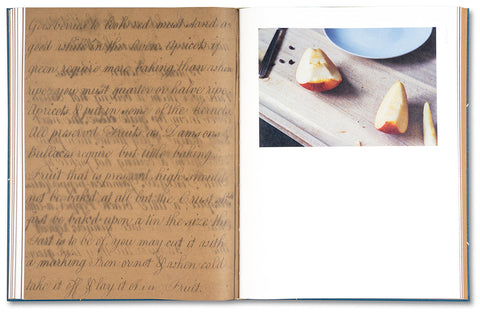 Gooseberries to look red must stand a
good while in the Oven, Apricots if
green require more baking than when
ripe you must quarter or halve ripe
Apricots & put in some of the Kernels
All preserved Fruits as Damsons &
Bullaces require but little baking
Fruit that is preserved high should
not be baked at all but the Crust
just be baked upon a tin the size the
Tart is to be of, you may cut it with
a marking Iron or not & when cold
take it off & lay it on Fruit.